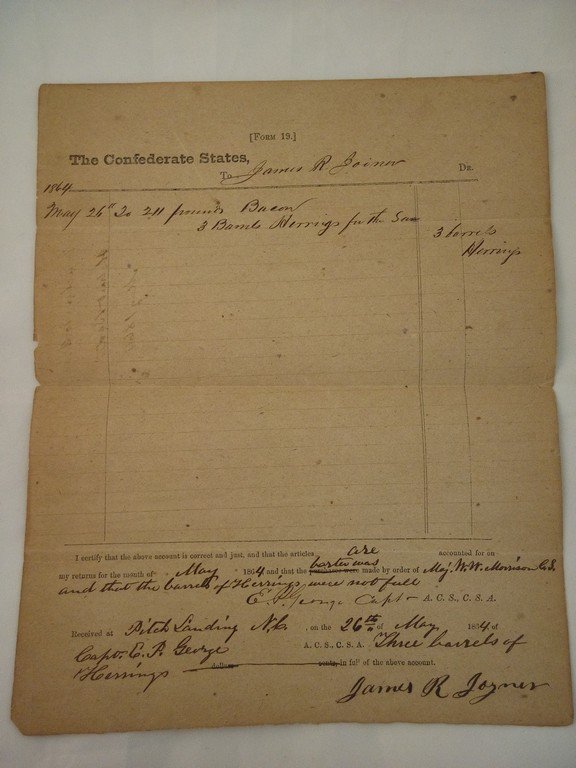 [FORM 19.]
The Confederate States,
To James R Joiner DR.
1864
May 26th To 211 pounds Bacon
3 Barrels Herrings for the Same
3 barrels
Herrings
I certify that the above account is correct and just, and that the articles are accounted for on
my returns for the month of May 1864 and that the purchase was barter was made by order of Maj. W. W. Morrison C.S.
and that the barrels of Herrings were not full
E. P. George Capt & A. C. S., C. S. A.
Received at Pitch Landing N.C. , on the 26th of May 1864 of
Capt. E. P. George A. C. S., C. S. A. Three barrels of
Herrings dollars cents, in full of the above account.
James R Joyner